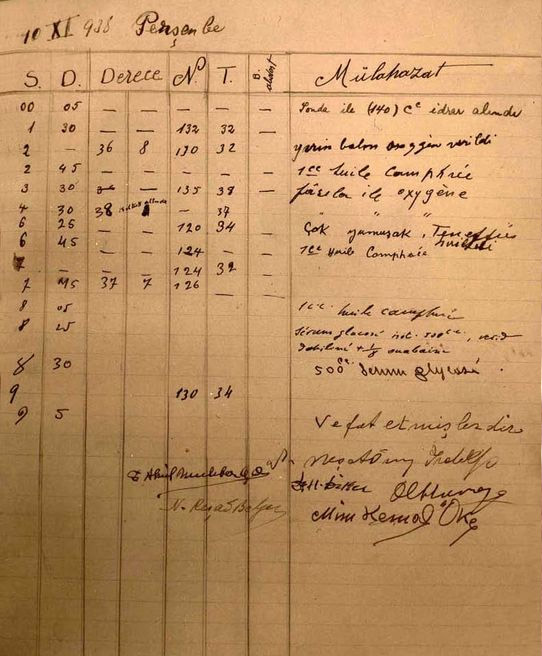 10 XI 938 Perşembe
S. D. Derece N. T. Mülahazat
00 05 — — — — — Sonda ile (140) cc idrar alındı
1 30 — — 132 32 —
2 — 36 8 130 32 — yarım balon oxygène verildi
2 45 — — — — — 1cc huile camphrée
3 30 — — 135 38 — fasıla ile oxygène
4 30 38 — 37 " " "
6 25 — — 120 34 Çok yumuşak, Teneffüs
6 45 — — 124 — 1cc huile Camphrée
7 — — — 124 32
7 45 37 7 126 —
8 05 1cc huile camphrée
8 25 Sérum glucosé 500cc
ouabaine
8 30 500cc Serum glycosé
9 130 34
9 5 Vefat etmişlerdir
N. Reşad Belger
Mim Kemal Öke